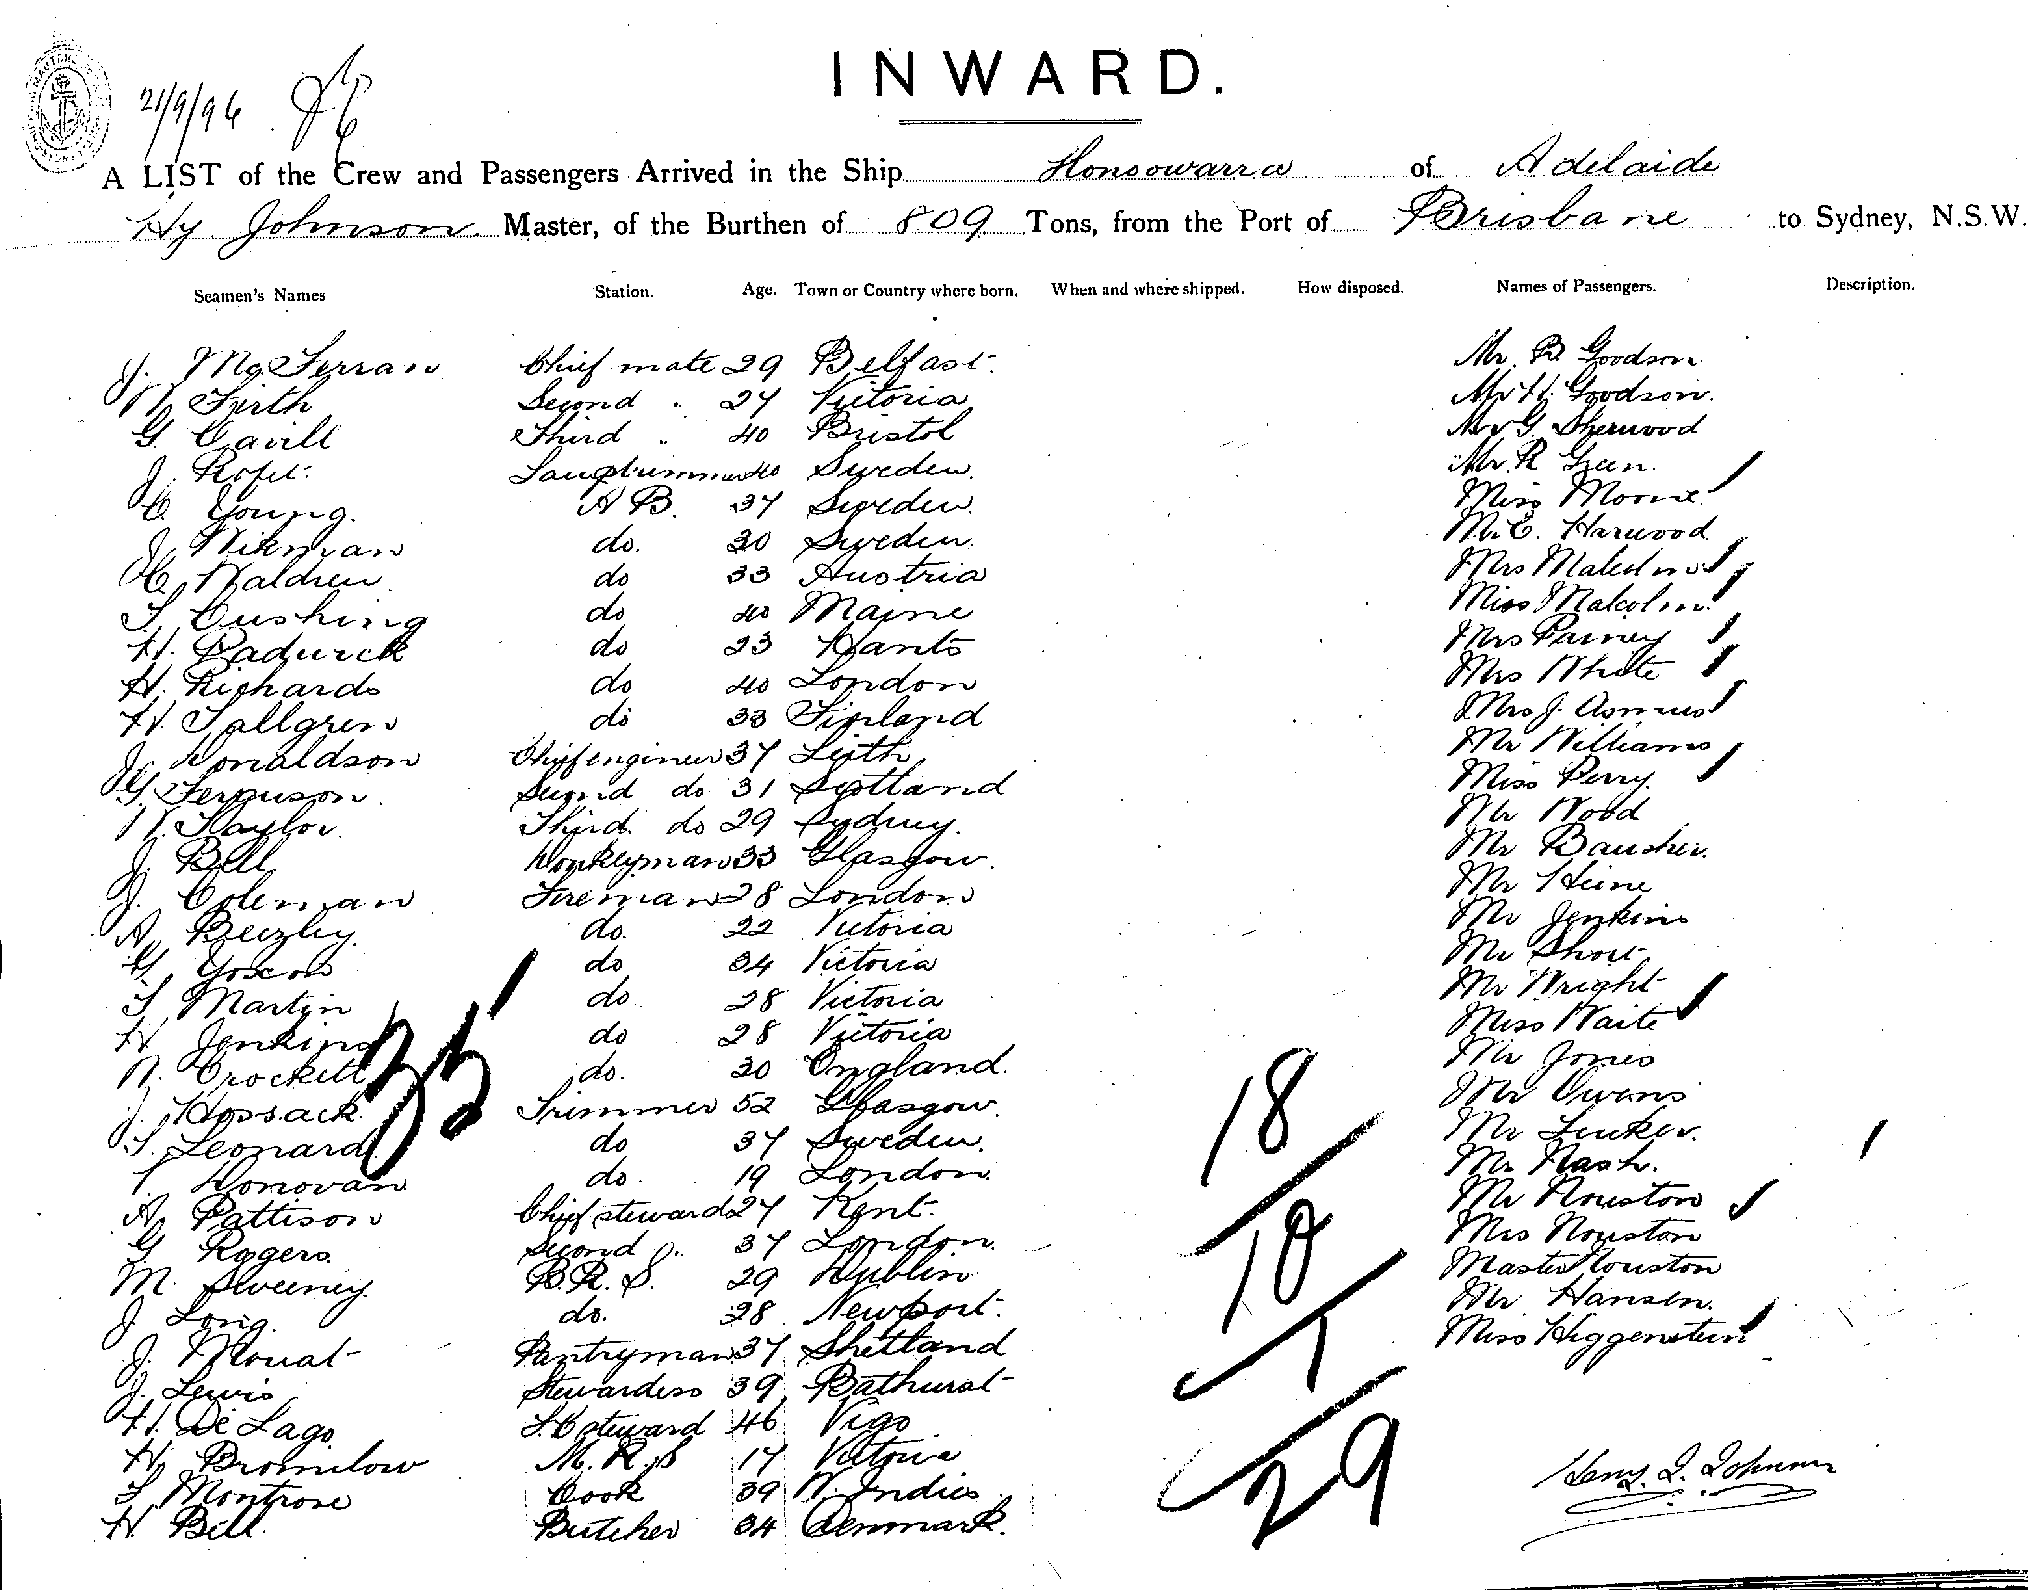 INWARD.
21/9/96
A LIST of the Crew and Passengers Arrived in the Ship Honoowarra of Adelaide
Hy Johnson Master, of the Burthen of 809 Tons, from the Port of Brisbane to Sydney, N.S.W.
Seamen's Names Station. Age. Town or Country where born. When and where shipped. How disposed. Names of Passengers. Description.
J. McFerran Chief mate 29 Belfast. Mr. R Goodson
W Firth Second " 27 Victoria Mr H. Goodson.
G Cavill Third " 40 Bristol Mr G Sherwood
J. Lamptrimmer 40 Sweden. Mr. R Green.
C. Young. A B. 37 Sweden. Miss Moore
J. Wikman do. 30 Sweden. Mr C. Harwood
C. Waldren do 33 Austria Mrs Malcolm
Cushing do 40 Maine Miss Malcolm
H. Padwick do 23 Hants Mrs
H. Richards do 40 London Mrs White
H. Sallgren do 33 Finland Mrs J. Asmus
J. Donaldson Chief engineer 37 Leith Mr Williams
G Ferguson. Second do 31 Scotland Miss Perry.
W. Taylor. Third. do 29 Sydney. Mr Wood
J. Bell Donkeyman 33 Glasgow. Mr
J. Coleman Fireman 28 London Mr Heine
A. Beezley. do. 22 Victoria Mr Jenkins
G. do 34 Victoria Mr Short
Martin do 28 Victoria Mr Wright
H Jenkins do 28 Victoria Miss Waite
W. Crockett do. 30 England. Mr Jones
J. Hossack. Trimmer 52 Glasgow. Mr Owens
Leonard do 37 Sweden. Mr
Donovan do. 19 London Mr Nash.
A Pattison Chief steward 27 Kent. Mr Houston
G Rogers. Second " 37 London. Mrs Houston
M. Sweeney. B. R. S. 29 Dublin Master Houston
J Long. do. 28 Newport. Mr Hansen.
J. Mouat Pantryman 37 Shetland Miss Higgenstein
J. Lewis Stewardess 39 Bathurst
H. De Lago. S.C steward 46 Vigo
H. Bromilow M. R. S 17 Victoria
Montrose Cook 39 W. Indies
H Bell. Butcher 34 Denmark.
35
18
10
1
29
Henry J. Johnson